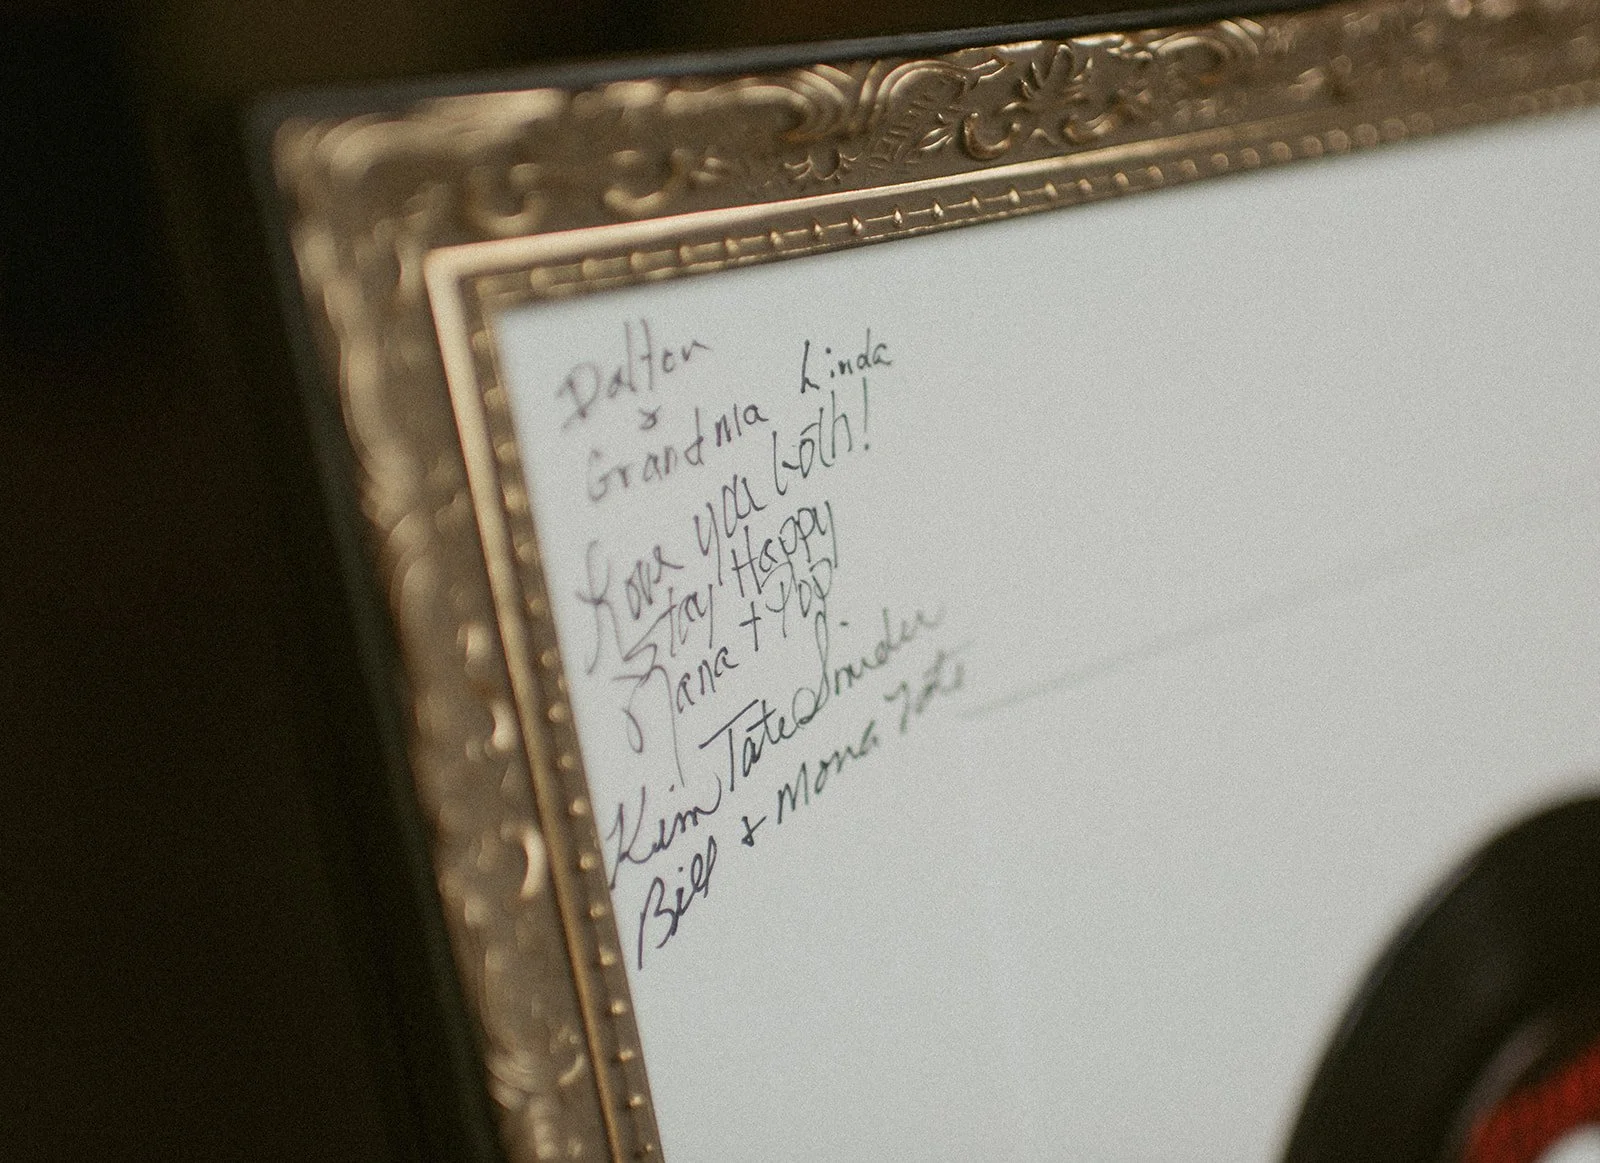 Dalton
&
Grandma Linda
Love you both!
Stay Happy
Nana + Pop
Kim Tate Snider
Bill & Mona Tate